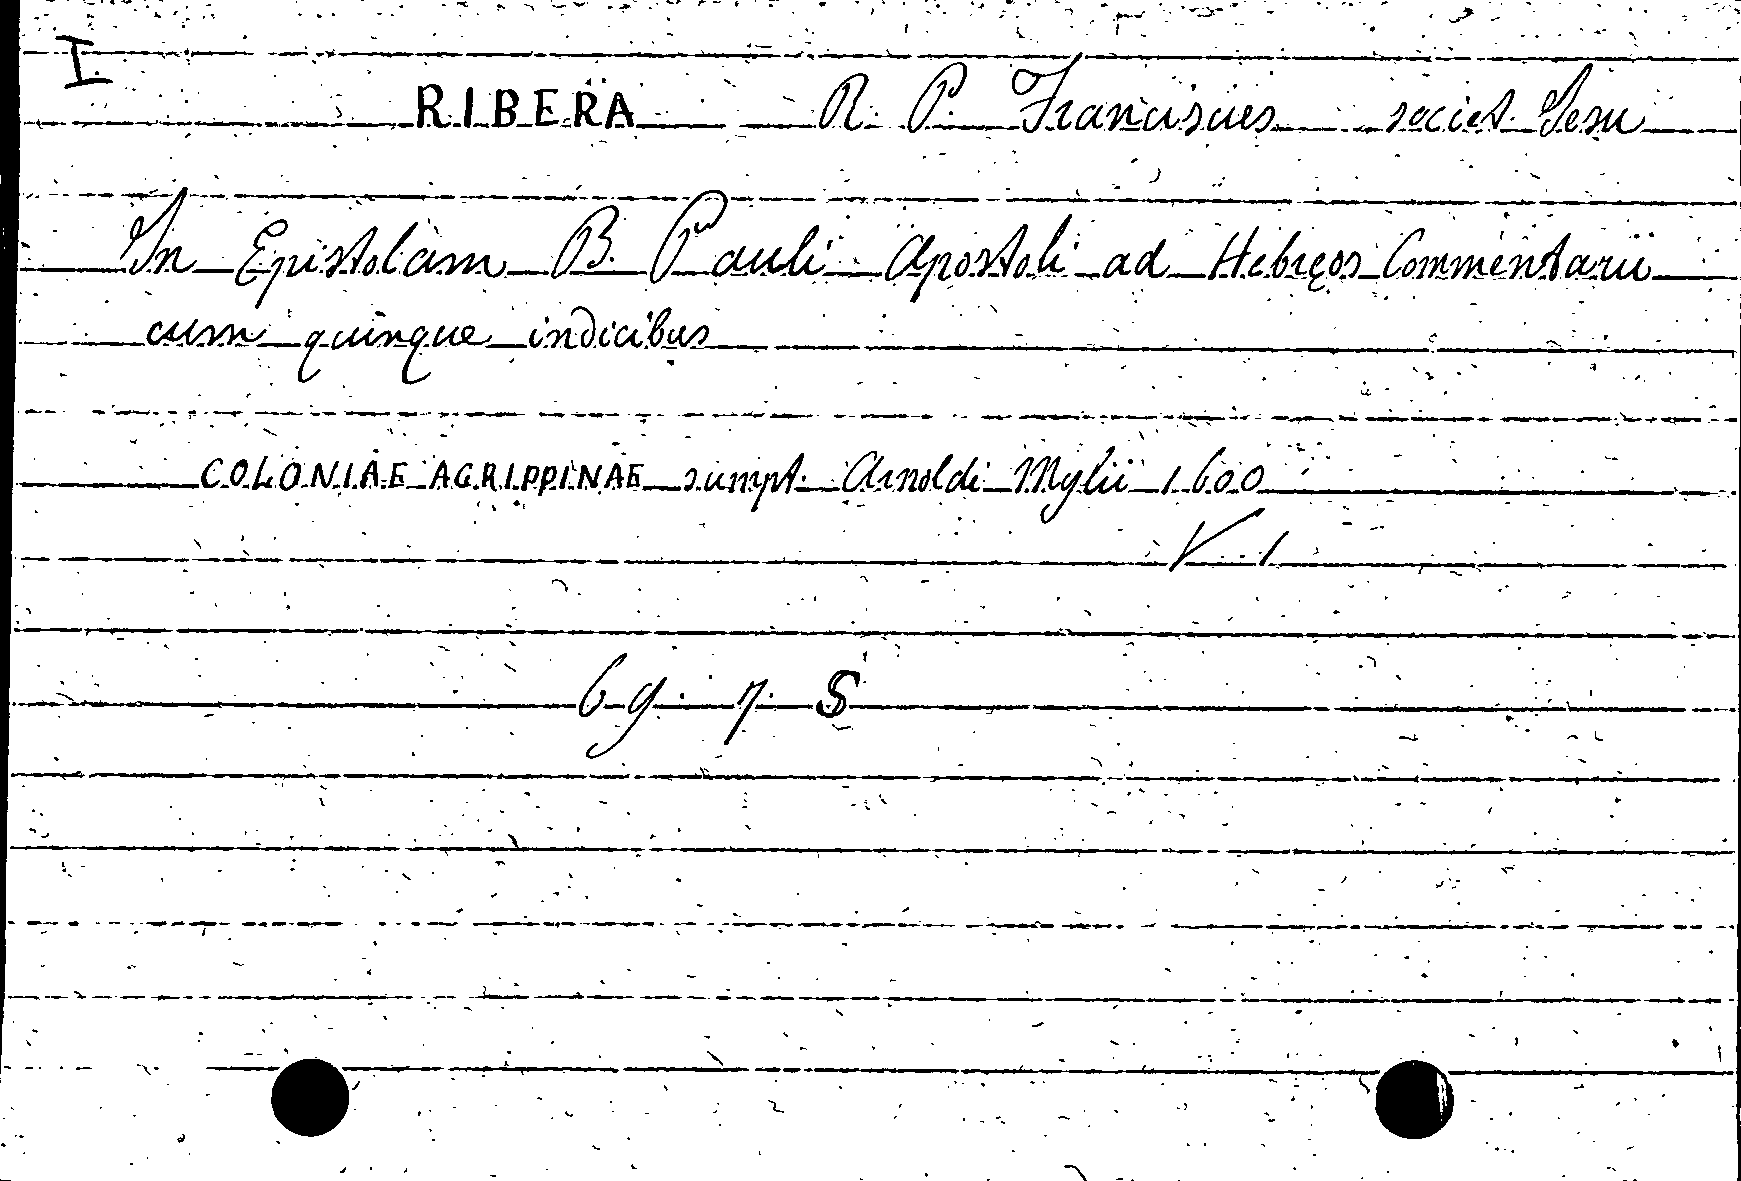 I
RIBERA R. P. Franciscus societ. Iesu
In Epistolam B. Pauli Apostoli ad Hebręos Commentarii
cum quinque indicibus
COLONIAE AGRIPPINAE sumpt. Arnoldi Mylii 1600
V. 1
69. 7. S